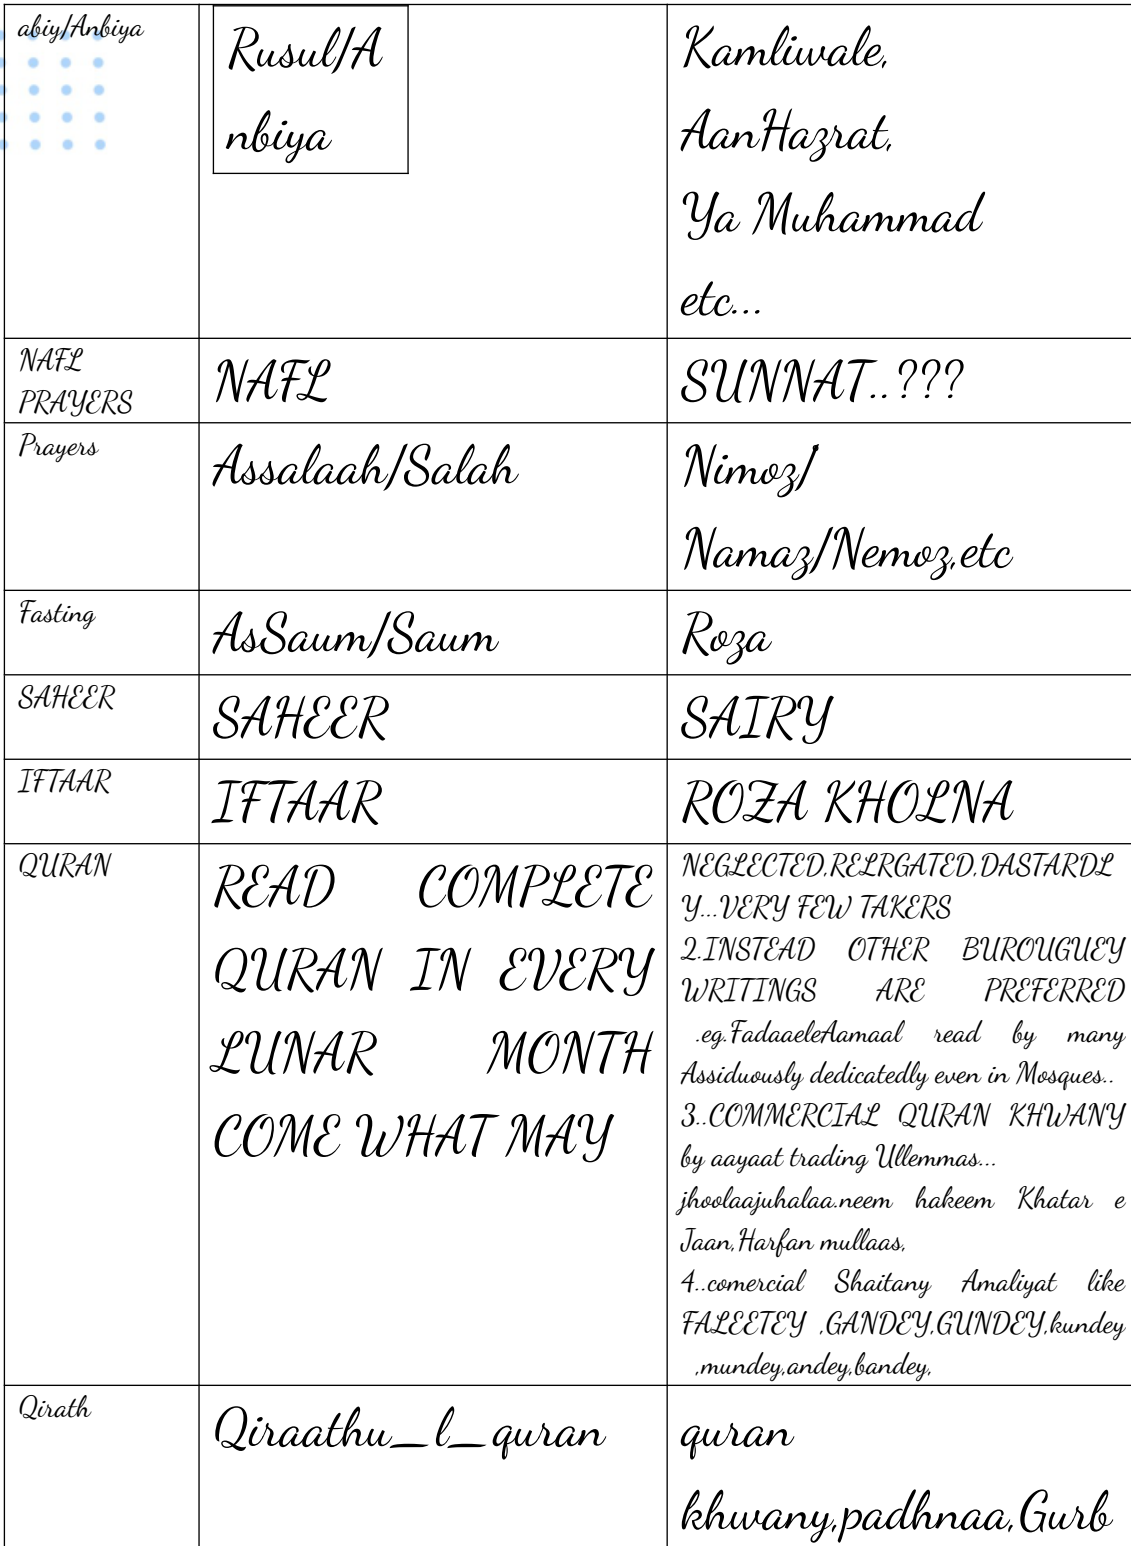 abiy/Anbiya
Rusul/A
nbiya
Kamliwale,
AanHazrat,
Ya Muhammad
etc...
NAFL
PRAYERS
NAFL
SUNNAT..???
Prayers
Assalaah/Salah
Nimoz/
Namaz/Nemoz,etc
Fasting
AsSaum/Saum
Roza
SAHEER
SAHEER
SAIRY
IFTAAR
IFTAAR
ROZA KHOLNA
QURAN
READ COMPLETE
QURAN IN EVERY
LUNAR MONTH
COME WHAT MAY
NEGLECTED,RELRGATED,DASTARDL
Y...VERY FEW TAKERS
2.INSTEAD OTHER BUROUGUEY
WRITINGS ARE PREFERRED
.eg.FadaaeleAamaal read by many
Assiduously dedicatedly even in Mosques..
3..COMMERCIAL QURAN KHWANY
by aayaat trading Ullemmas...
jhoolaajuhalaa.neem hakeem Khatar e
Jaan,Harfan mullaas,
4..comercial Shaitany Amaliyat like
FALEETEY ,GANDEY,GUNDEY,kundey
,mundey,andey,bandey,
Qirath
Qiraathu_l_quran
quran
khwany,padhnaa,Gurb